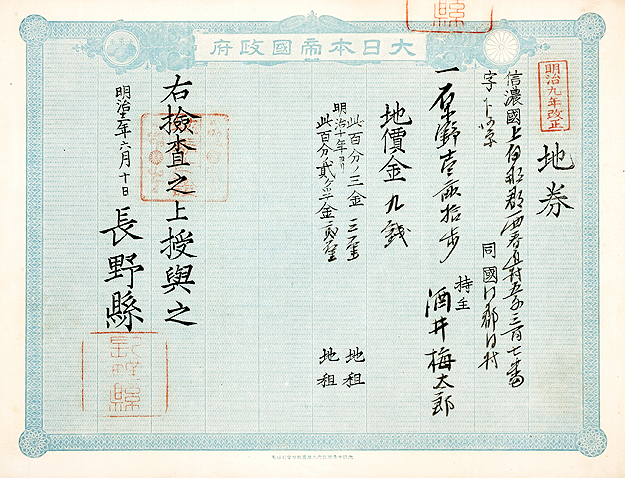 大日本帝國政府
明治九年改正
地券
信濃國上伊那郡西春近村五千三百七番
字下
同國同郡同村
一原野壹畝拾歩
持主 酒井梅太郎
地價金九錢
此百分ノ三金 三厘 地租
明治十年ヨリ
此百分ノ貳ヶ半金 貳厘 地租
右檢査之上授與之
明治十一年六月十日
長野縣
縣